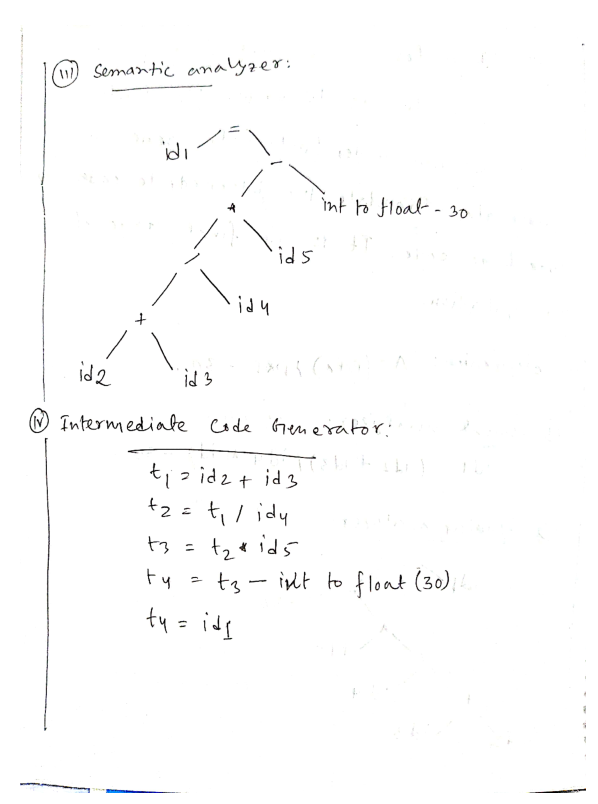 (iii) Semantic analyzer:
=
id1
-
*
int to float - 30
/
id5
+
id4
id2
id3
(iv) Intermediate Code Generator:
t1 = id2 + id3
t2 = t1 / id4
t3 = t2 * id5
t4 = t3 - int to float (30)
t4 = id1